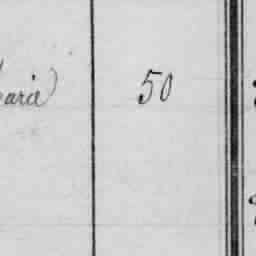 arié 50